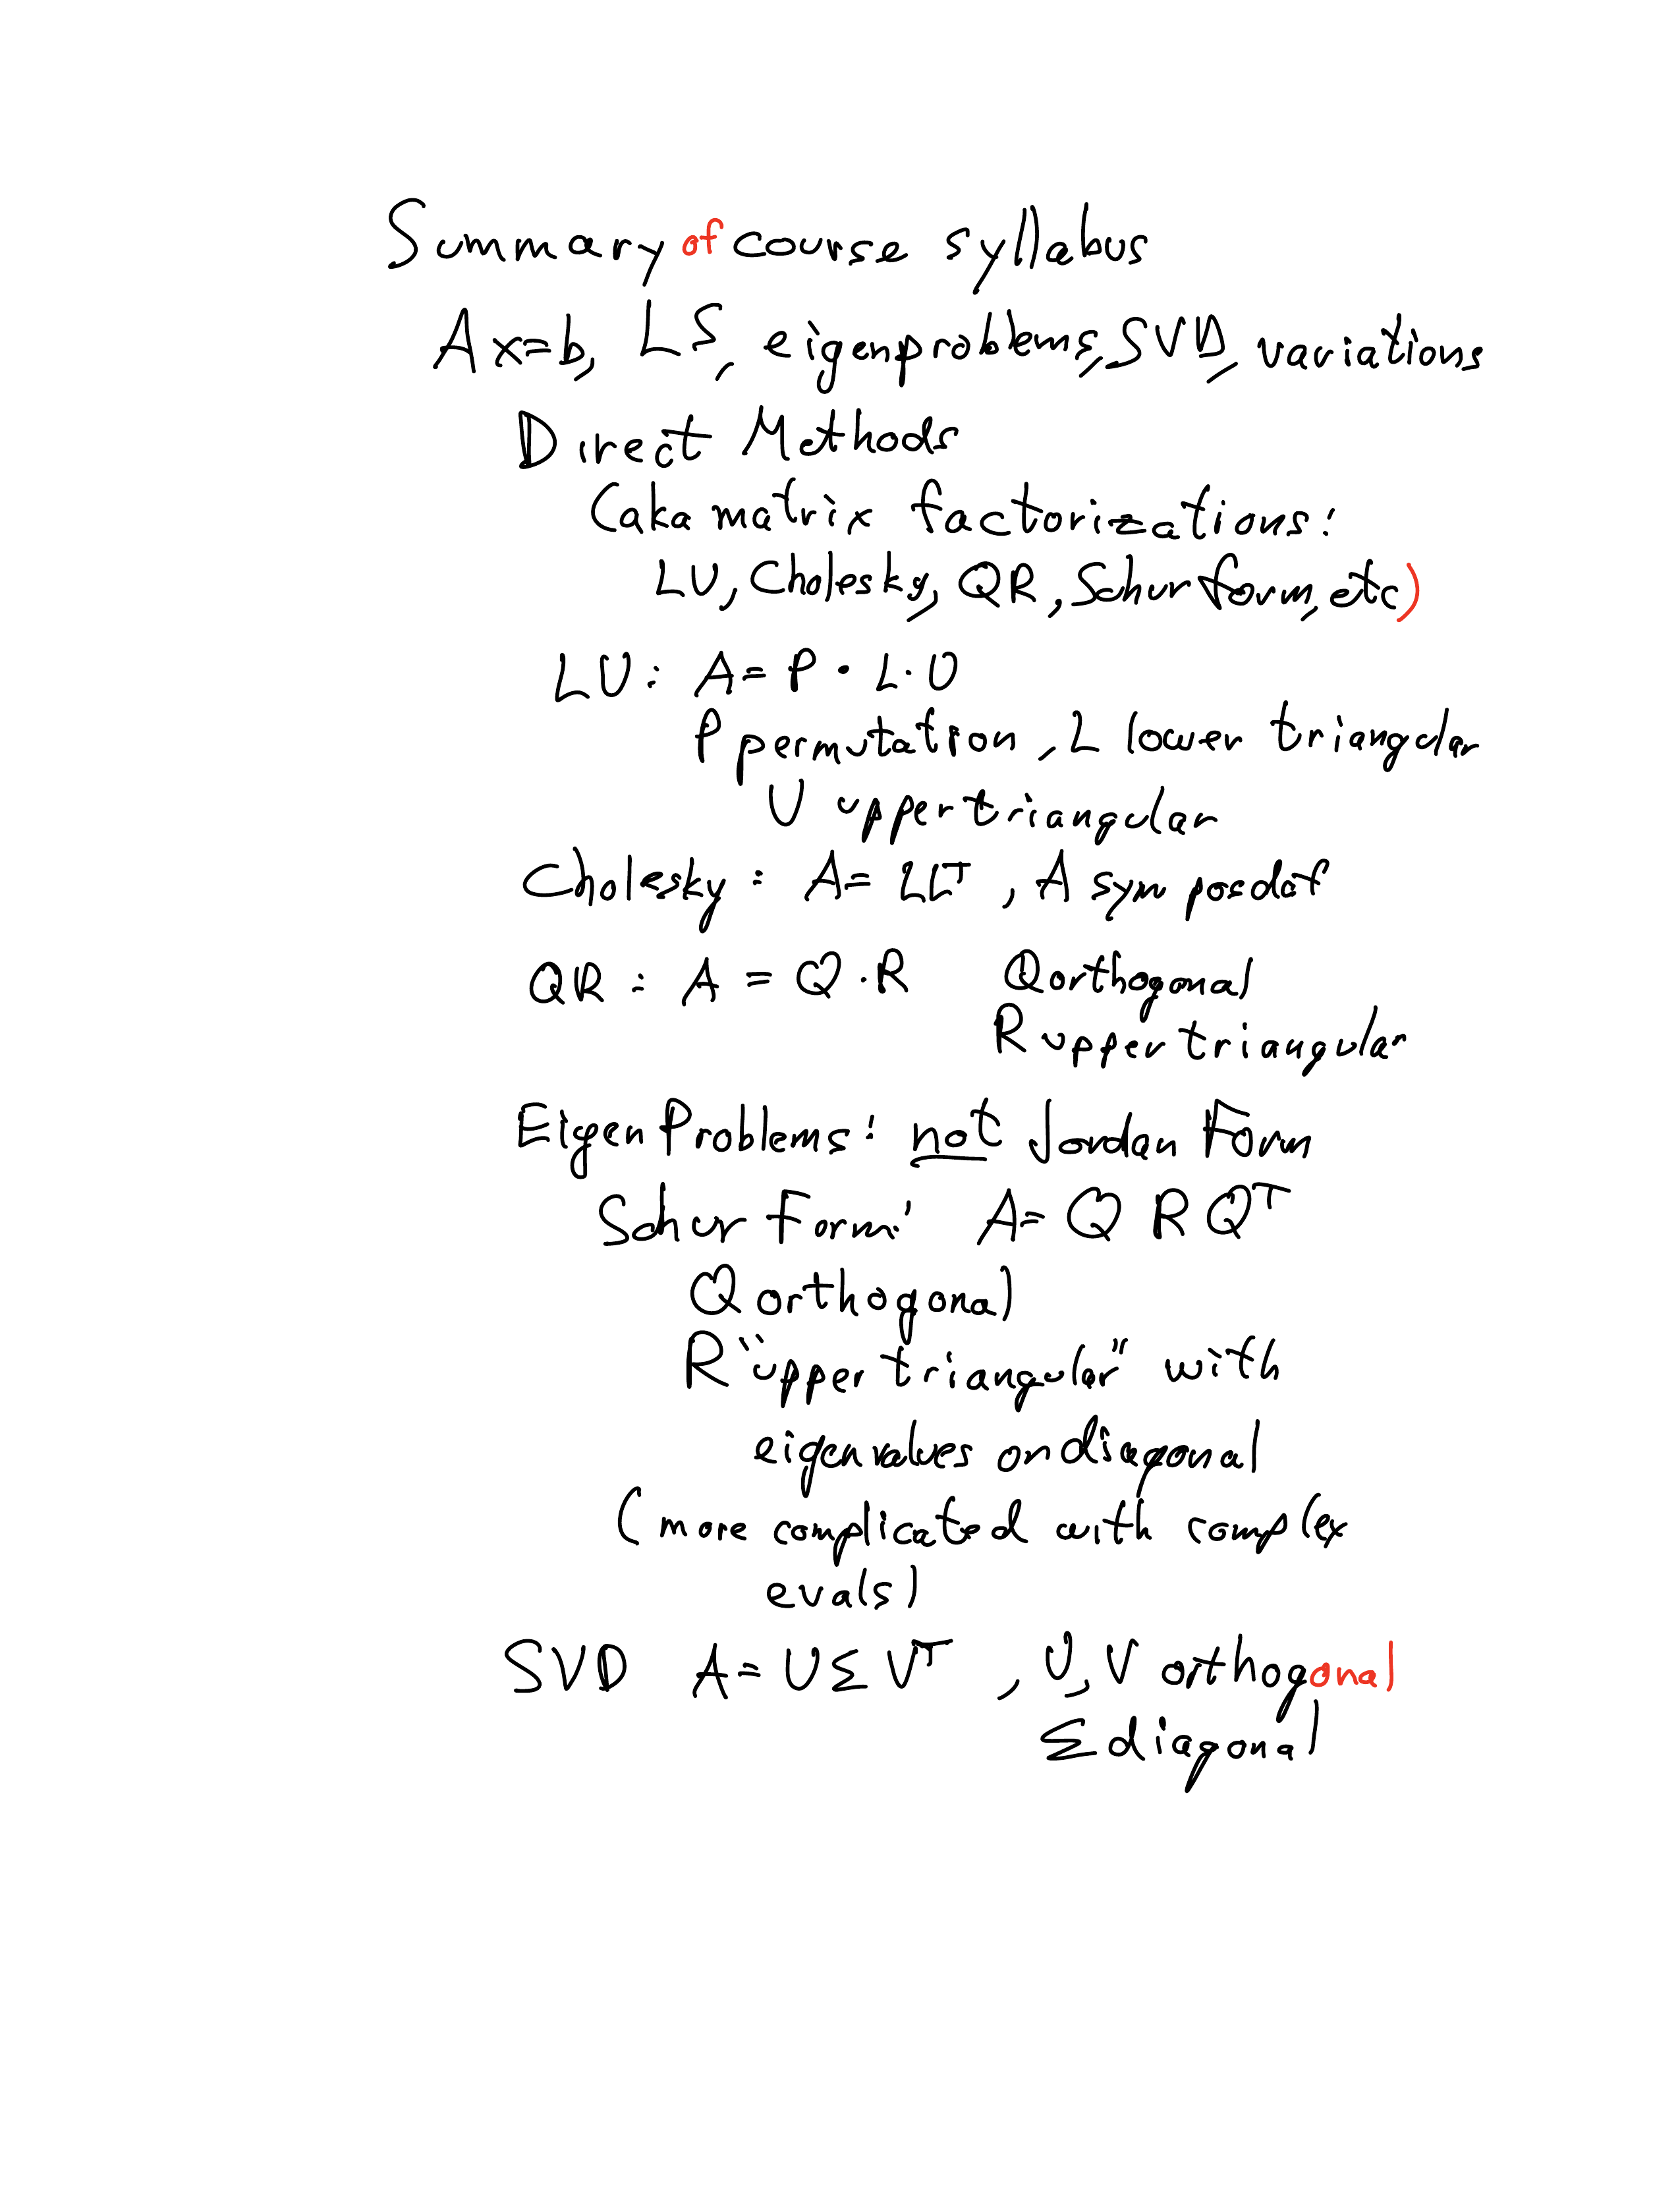 Summary of course syllabus
Ax=b, LS, eigenproblems, SVD, variations
Direct Methods
(aka matrix factorizations:
LU, Cholesky, QR, Schur form, etc)
LU: A= P · L · U
P permutation, L lower triangular
U upper triangular
Cholesky: A= LLᵀ, A sym posdef
QR: A = Q · R Q orthogonal
R upper triangular
Eigen Problems: not Jordan Form
Schur Form: A= Q R Qᵀ
Q orthogonal
R "upper triangular" with
eigenvalues on diagonal
(more complicated with complex
evals)
SVD A= U Σ Vᵀ, U, V orthogonal
Σ diagonal